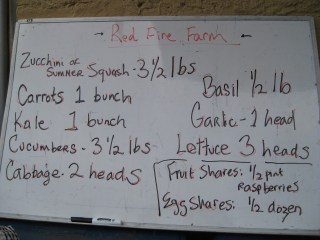 → Red Fire Farm ←
Zucchini or
Summer Squash - 3 1/2 lbs
Carrots 1 bunch
Kale 1 bunch
Cucumbers - 3 1/2 lbs
Cabbage - 2 heads
Basil 1/2 lb
Garlic - 1 head
Lettuce 3 heads
Fruit Shares: 1/2 pint
Raspberries
Egg Shares: 1/2 dozen